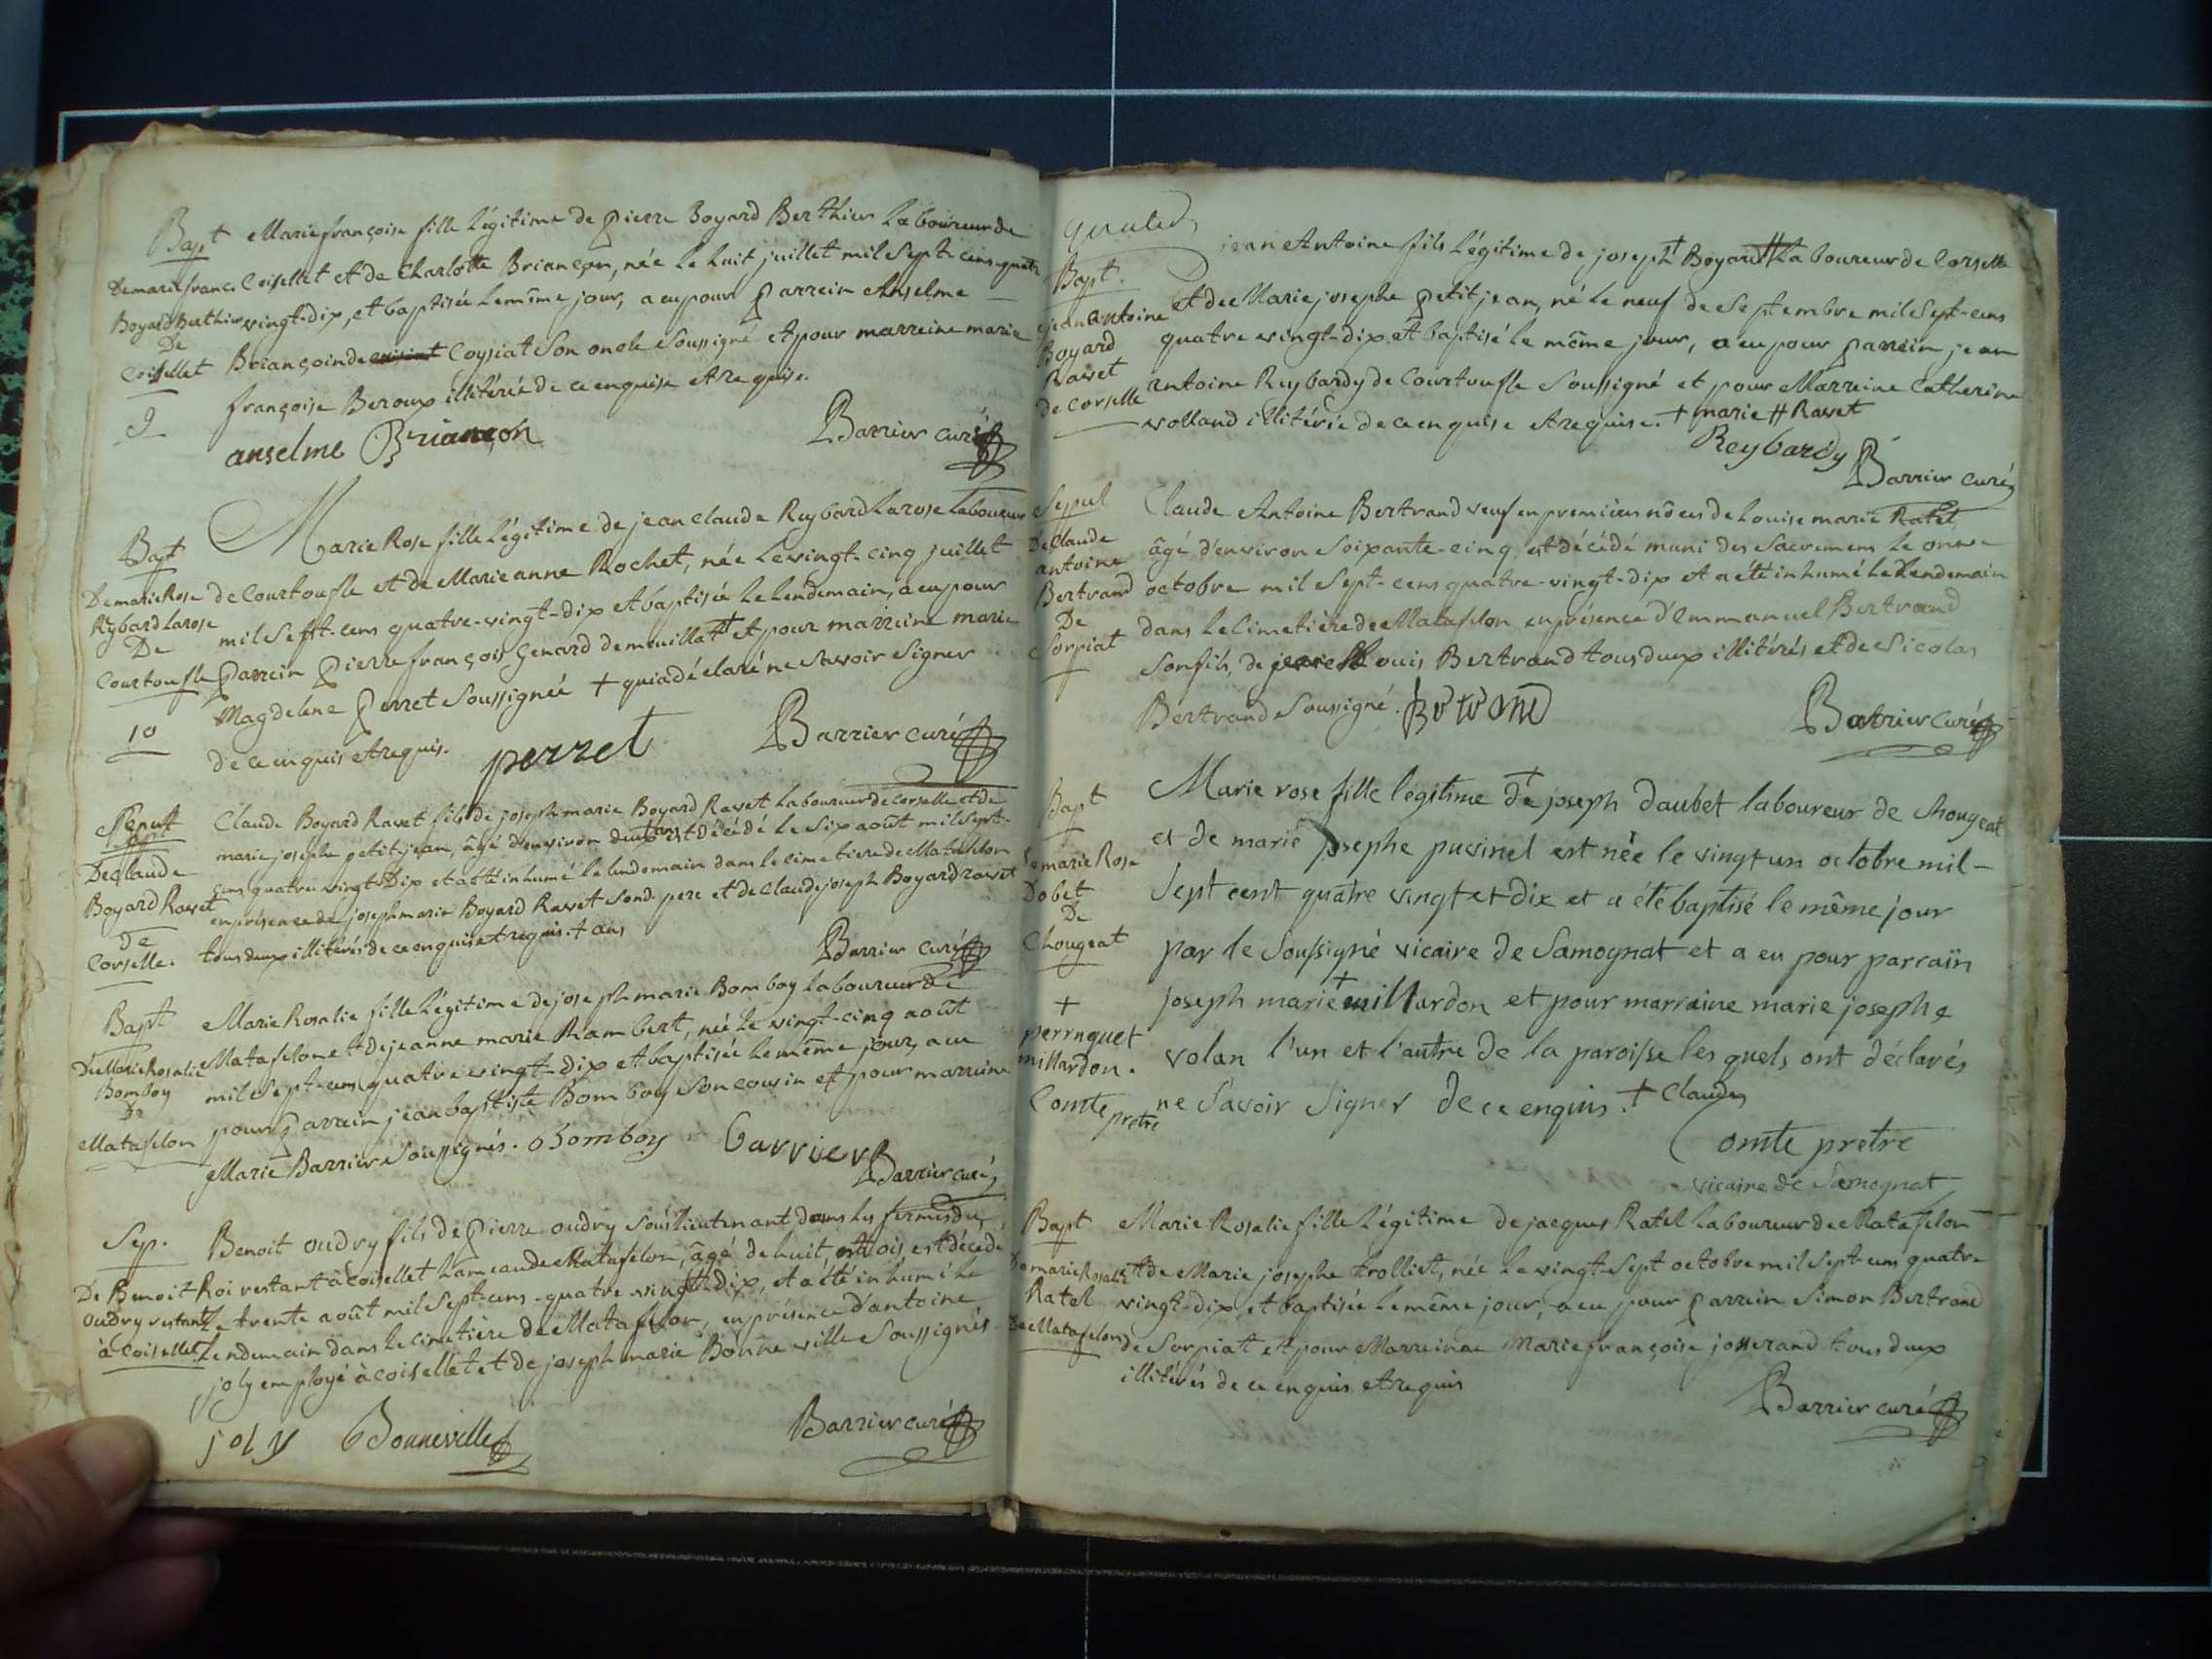 Bapt
De marie franc.
Boyard Berthier
De
Coisellet
9
Marie françoise fille légitime de pierre Boyard Berthier laboureur de
Coisellet et de Charlotte Briançon, née le huit juillet mil sept-cens quatre
vingt-dix, et baptisée le même jour, a eu pour parrein Anselme
Briançon de Coysiat son oncle soussigné et pour marreine marie
françoise Beroux illitérée de ce enquise et requise.
anselme Briançon Barrier curé
Bapt
De marie Rose
Reybard Larose
De
Courtoufle
10
Marie Rose fille légitime de jean claude Reybard Larose laboureur
de Courtoufle et de Marie anne Rochet, née le vingt-cinq juillet
mil sept-cens quatre-vingt-dix et baptisée le lendemain, a eu pour
parrein pierre françois Genard de mouillat + et pour marreine marie
Magdelene perret soussignée + qui a déclaré ne savoir signer
de ce enquis et requis.
perret Barrier curé
Sepult
De claude
Boyard Ravet
De
Corselle.
Claude Boyard Ravet fils de joseph marie Boyard Ravet laboureur de corselle et de
marie josephe petitjean, âgé d'environ deux + est décédé le six août mil sept-
cens quatre vingt-Dix et a été inhumé le lendemain dans le cimetiere de Matafelon
en présence de joseph marie Boyard Ravet son d. pere et de claude joseph Boyard ravet
tous deux illitérés de ce enquis et requis. + ans
Barrier curé
Bapt
De Marie Rosalie
Bomboy
De
Matafelon
Marie Rosalie fille légitime de joseph marie Bomboy laboureur de
Matafelon et de jeanne marie Rambert, née le vingt-cinq août
mil sept-cens quatre vingt-dix et baptisée le même jour, a eu
pour parrein jean baptiste Bomboy son cousin et pour marreine
Marie Barrier soussignés. Bomboy barrier
Barrier curé
Sep.
De Benoit
oudry restant
à Coisellet
Benoit oudry fils de pierre oudry sous lieutenant dans les fermes du
Roi restant à coisellet hameau de Matafelon, âgé de huit mois, est décédé
le trente août mil sept-cens-quatre-vingt-dix, et a été inhumé le
lendemain dans le cimetière de Matafelon, en présence d'antoine
joly employé à coisellet et de joseph marie Bonneville soussignés
joly Bonneville Barrier curé
Bapt.
jean Antoine
Boyard
Ravet
de corselle
jean Antoine fils légitime de joseph + Boyard # laboureur de Corselle
et de Marie josephe petit jean, né le neuf de septembre mil sept-cens
quatre vingt-dix et baptisé le même jour, a eu pour parrein jean
antoine Reybardy de Courtoufle soussigné et pour Marreine Catherine
volland illitérée de ce enquise et requise. + marie # Ravet
Reybardy
Barrier curé
Sepul
De Claude
antoine
Bertrand
De
Sorpiat
Claude Antoine Bertrand veuf en premieres nôces de Louise marie Ratel
âgé d'environ soixante-cinq, est décédé muni des sacremens le onze
octobre mil sept-cens quatre-vingt-dix et a été inhumé le lendemain
dans le cimetière de Matafelon en présence d'Emmanuel Bertrand
son fils, de Louis Bertrand tous deux illitérés et de Nicolas
Bertrand soussigné. Barrier curé
Bapt
De marie Rose
Dobet
De
Chougeat
+
perrnquet
millardon.
Comte pretre
Marie rose fille legitime de + joseph daubet laboureur de chougeat
et de marie josephe puvinel est née le vingt un octobre mil-
sept cent quatre vingt et dix et a été baptisé le même jour
par le soussigné vicaire de Samognat et a eu pour parrain
joseph marie + millardon et pour marraine marie josephe
volan l'un et l'autre de la paroisse lesquels ont déclarés
ne savoir signer de ce enquis. + Claude
Comte pretre
vicaire de Samognat
Bapt
De marie Rosalie
Ratel
De Matafelon
Marie Rosalie fille légitime de jacques Ratel laboureur de Matafelon
et de Marie josephe trolliet, née le vingt-sept octobre mil sept-cens quatre
vingt-dix, et baptisée le même jour, a eu pour parrein Simon Bertrand
de Sorpiat et pour Marreinae Marie françoise josserand tous deux
illitérés de ce enquis et requis
Barrier curé